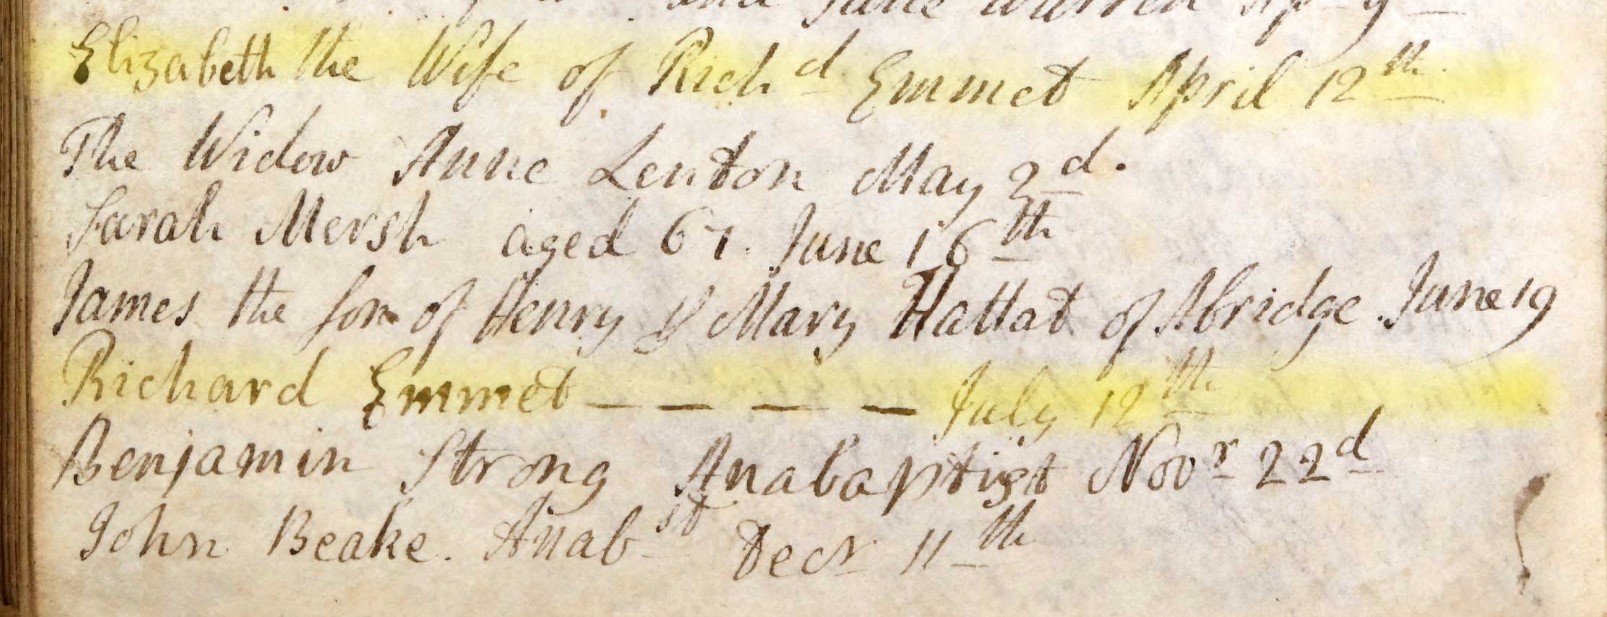 and Jane Warren Ap 9th
Elizabeth the Wife of Richd Emmet April 12th
The Widow Anne Lenton May 2d.
Sarah Mersh aged 67. June 16th
James the son of Henry & Mary Hattat of Abridge June 19
Richard Emmet — — — — July 12th
Benjamin Strong Anabaptist Novr 22d
John Beake. Anabst Decr 11th